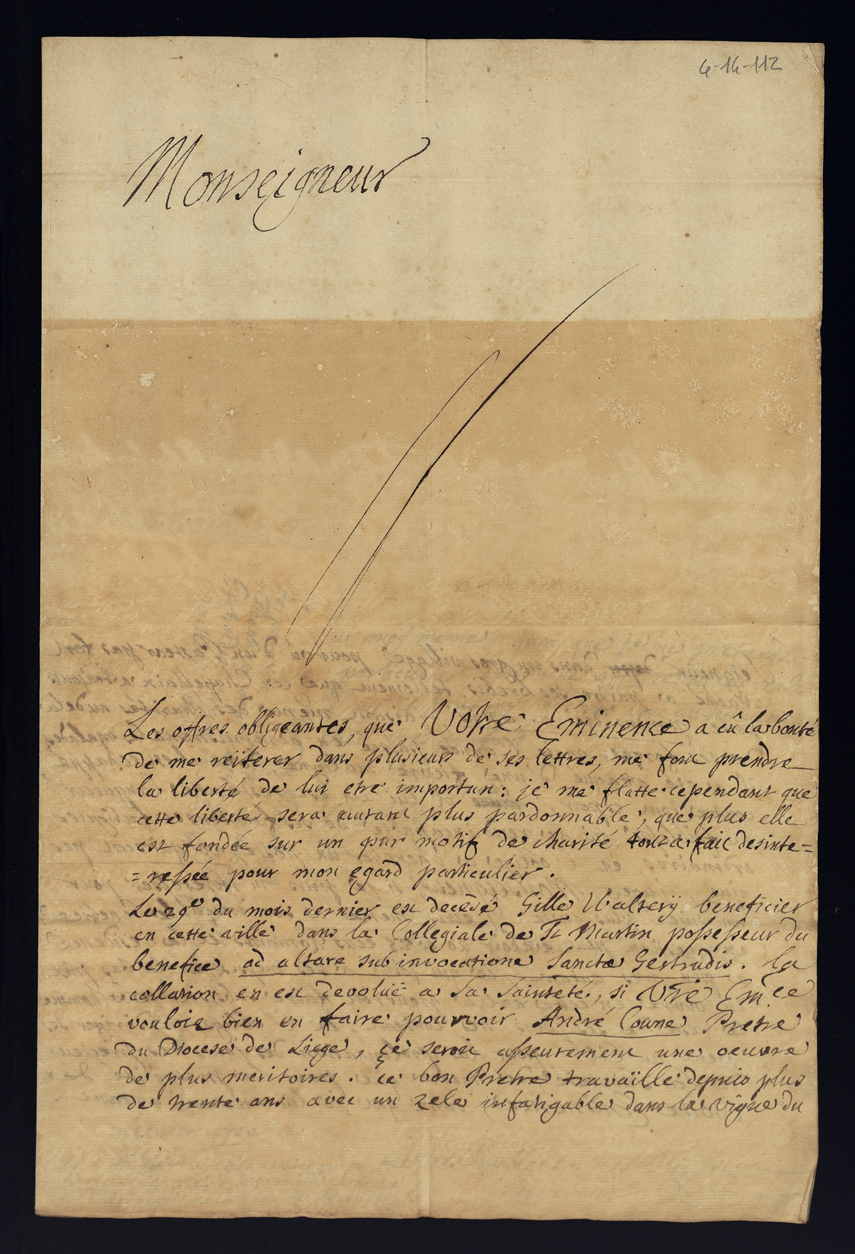 4-14-112
Monseigneur
Les offres obligeantes, que Votre Eminence a eû la bonté
de me reïterer dans plusieurs de ses lettres, me font prendre
la liberté de lui etre importun: je me flatte cependant que
cette liberté sera autant plus pardonnable, que plus elle
est fondée sur un pur motif de charité tout a fait desinte=
=ressée pour mon egard particulier.
Le 29e du mois dernier est decédé Gille Walterÿ beneficier
en cette ville dans la Collegiale de St Martin possesseur du
benefice ad altare sub invocatione Sanctæ Gertrudis. La
collation en est devoluë a Sa Sainteté, si Vtre Em.ce
vouloit bien en faire pourvoir André Coune Pretre
du Diocese de Liege, ce seroit asseurement une oeuvre
de plus meritoires. ce bon Pretre travaïlle depuis plus
de trente ans avec un zele infatigable dans la vigne du